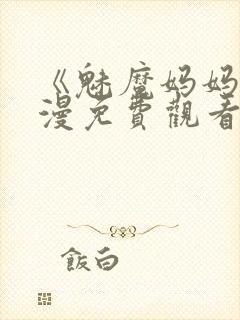 《魅魔妈妈
漫免費觀看
飯白